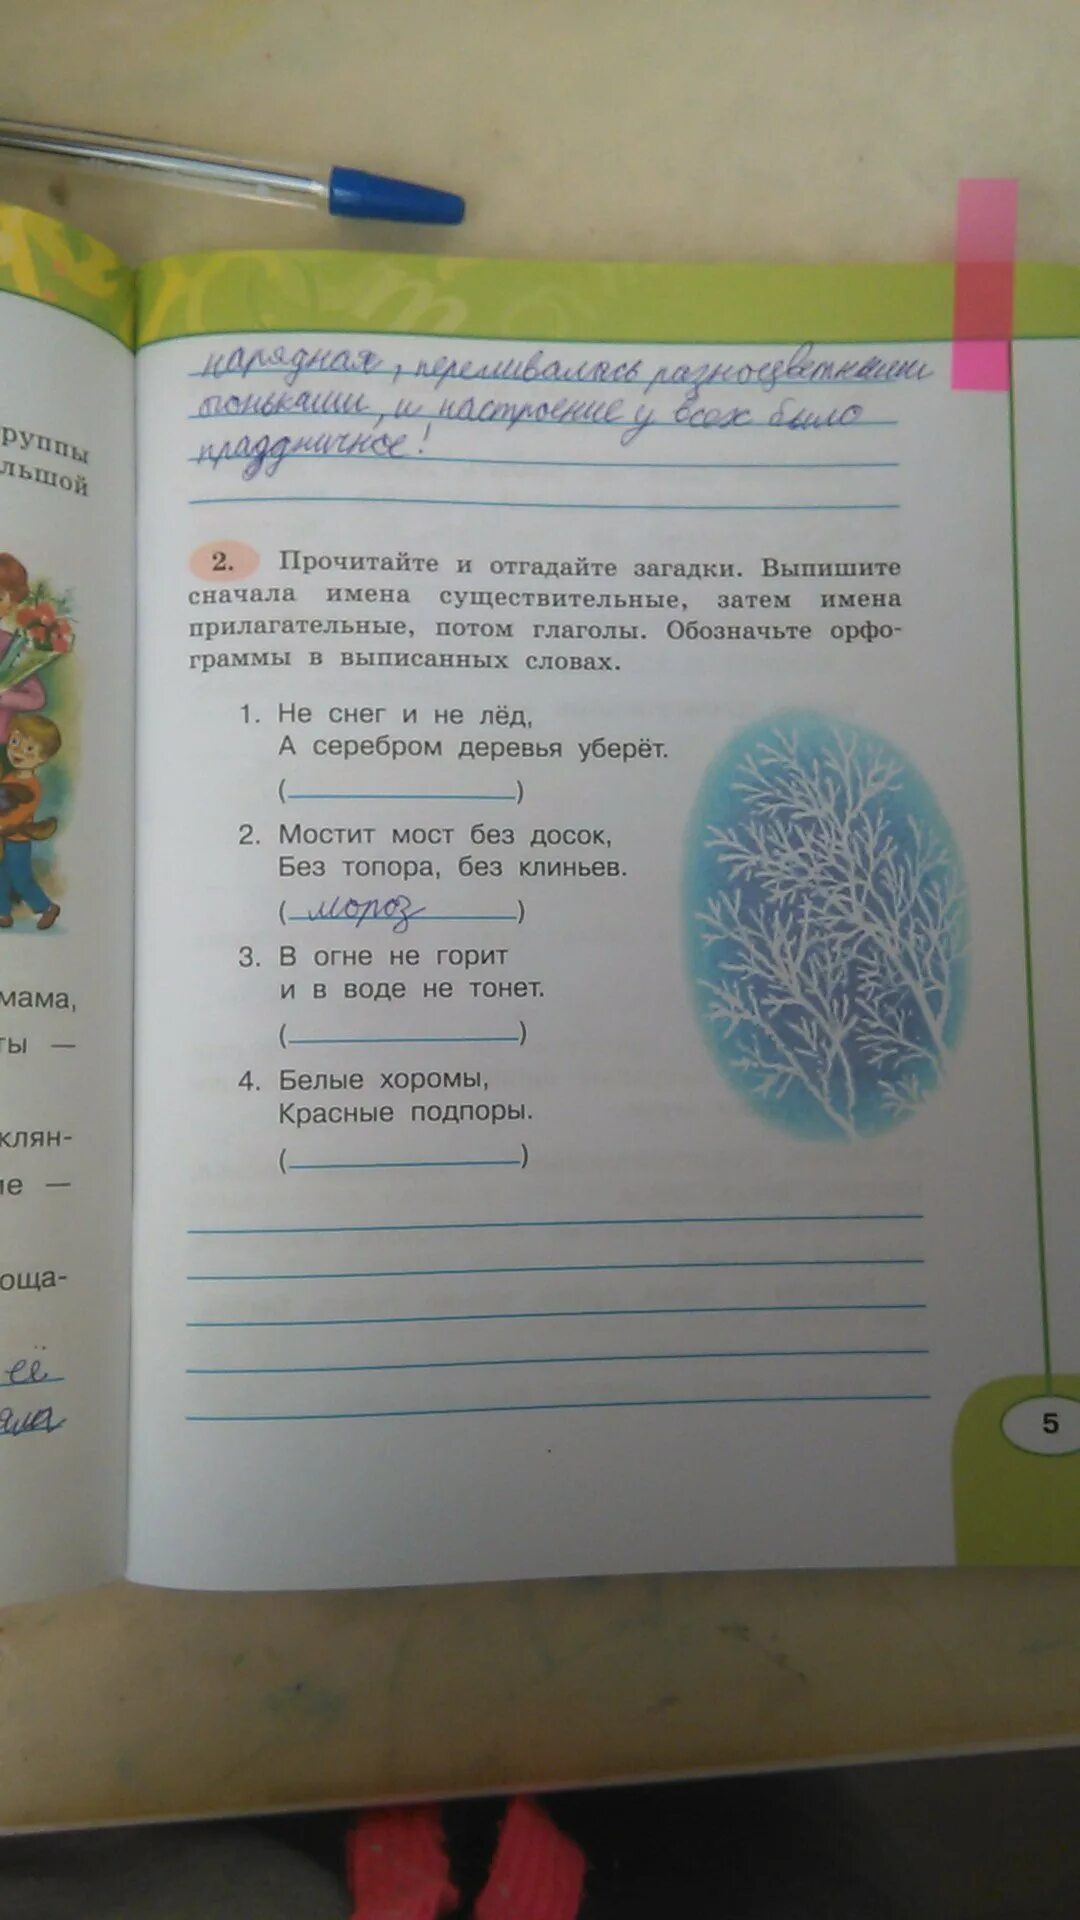 нарядная, переливалась разноцветными
огоньками, и настроение у всех было
праздничное!
руппы
льшой
2. Прочитайте и отгадайте загадки. Выпишите
сначала имена существительные, затем имена
прилагательные, потом глаголы. Обозначьте орфо-
граммы в выписанных словах.
1. Не снег и не лёд,
А серебром деревья уберёт.
(                    )
2. Мостит мост без досок,
Без топора, без клиньев.
( мороз )
3. В огне не горит
и в воде не тонет.
(                    )
4. Белые хоромы,
Красные подпоры.
(                    )
мама,
ты —
клян-
ие —
оща-
её
5